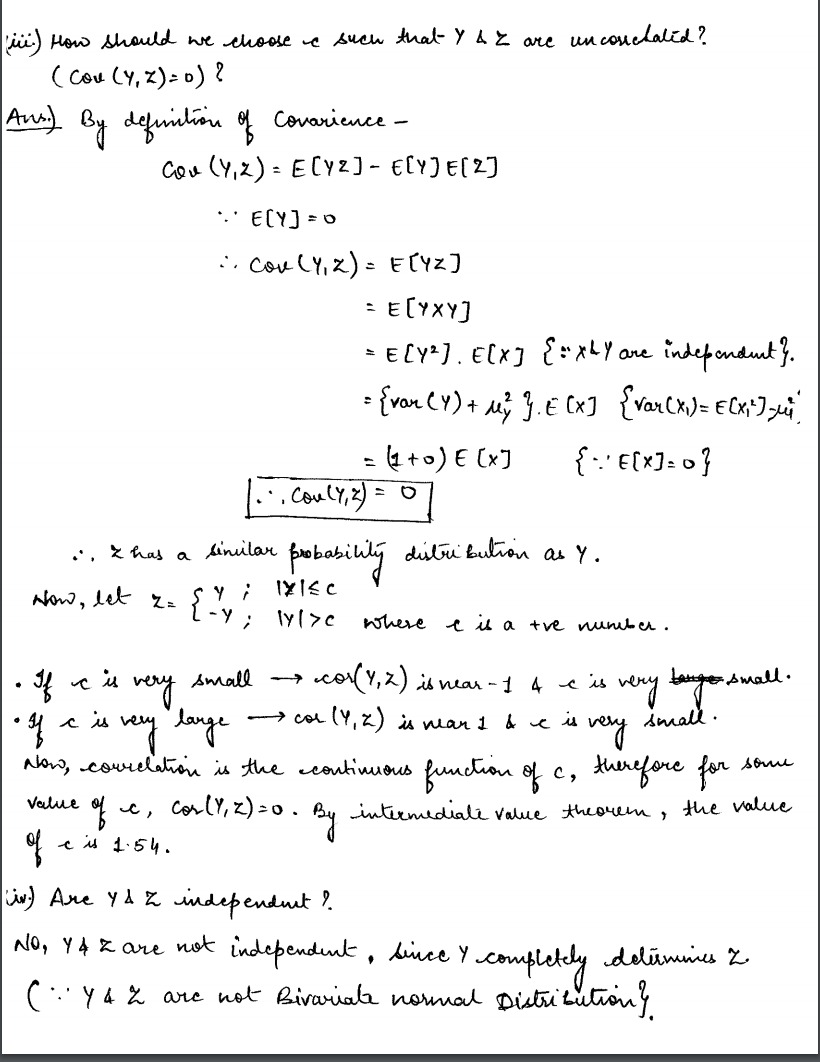 (iii) How should we choose c such that Y & Z are uncorrelated?
( Cov (Y,Z)=0) ?
Ans.) By definition of Covarience -
Cov (Y,Z) = E[YZ] - E[Y]E[Z]
∵ E[Y] = 0
∴ Cov (Y,Z) = E[YZ]
= E[YXY]
= E[Y²] . E[X] {∵ X & Y are independent}.
= {var(Y) + μ_y² }. E[X] {var(X₁) = E[X₁²] - μ₁²}
= (1+0) E[X] {∵ E[X]=0}
∴, Cov(Y,Z) = 0
∴, Z has a similar probability distribution as Y.
Now, let Z = { Y ; |Y| ≤ c
-Y ; |Y| > c where c is a +ve number.
• If c is very small → cor(Y,Z) is near -1 & c is very large small.
• If c is very large → cor (Y,Z) is near 1 & c is very small.
Now, correlation is the continuous function of c, therefore for some
value of c, Cor(Y,Z)=0. By intermediate value theorem, the value
of c is 1.54.
(iv) Are Y & Z independent ?
No, Y & Z are not independent, since Y completely determines Z.
(∵ Y & Z are not Bivariate normal Distribution}.